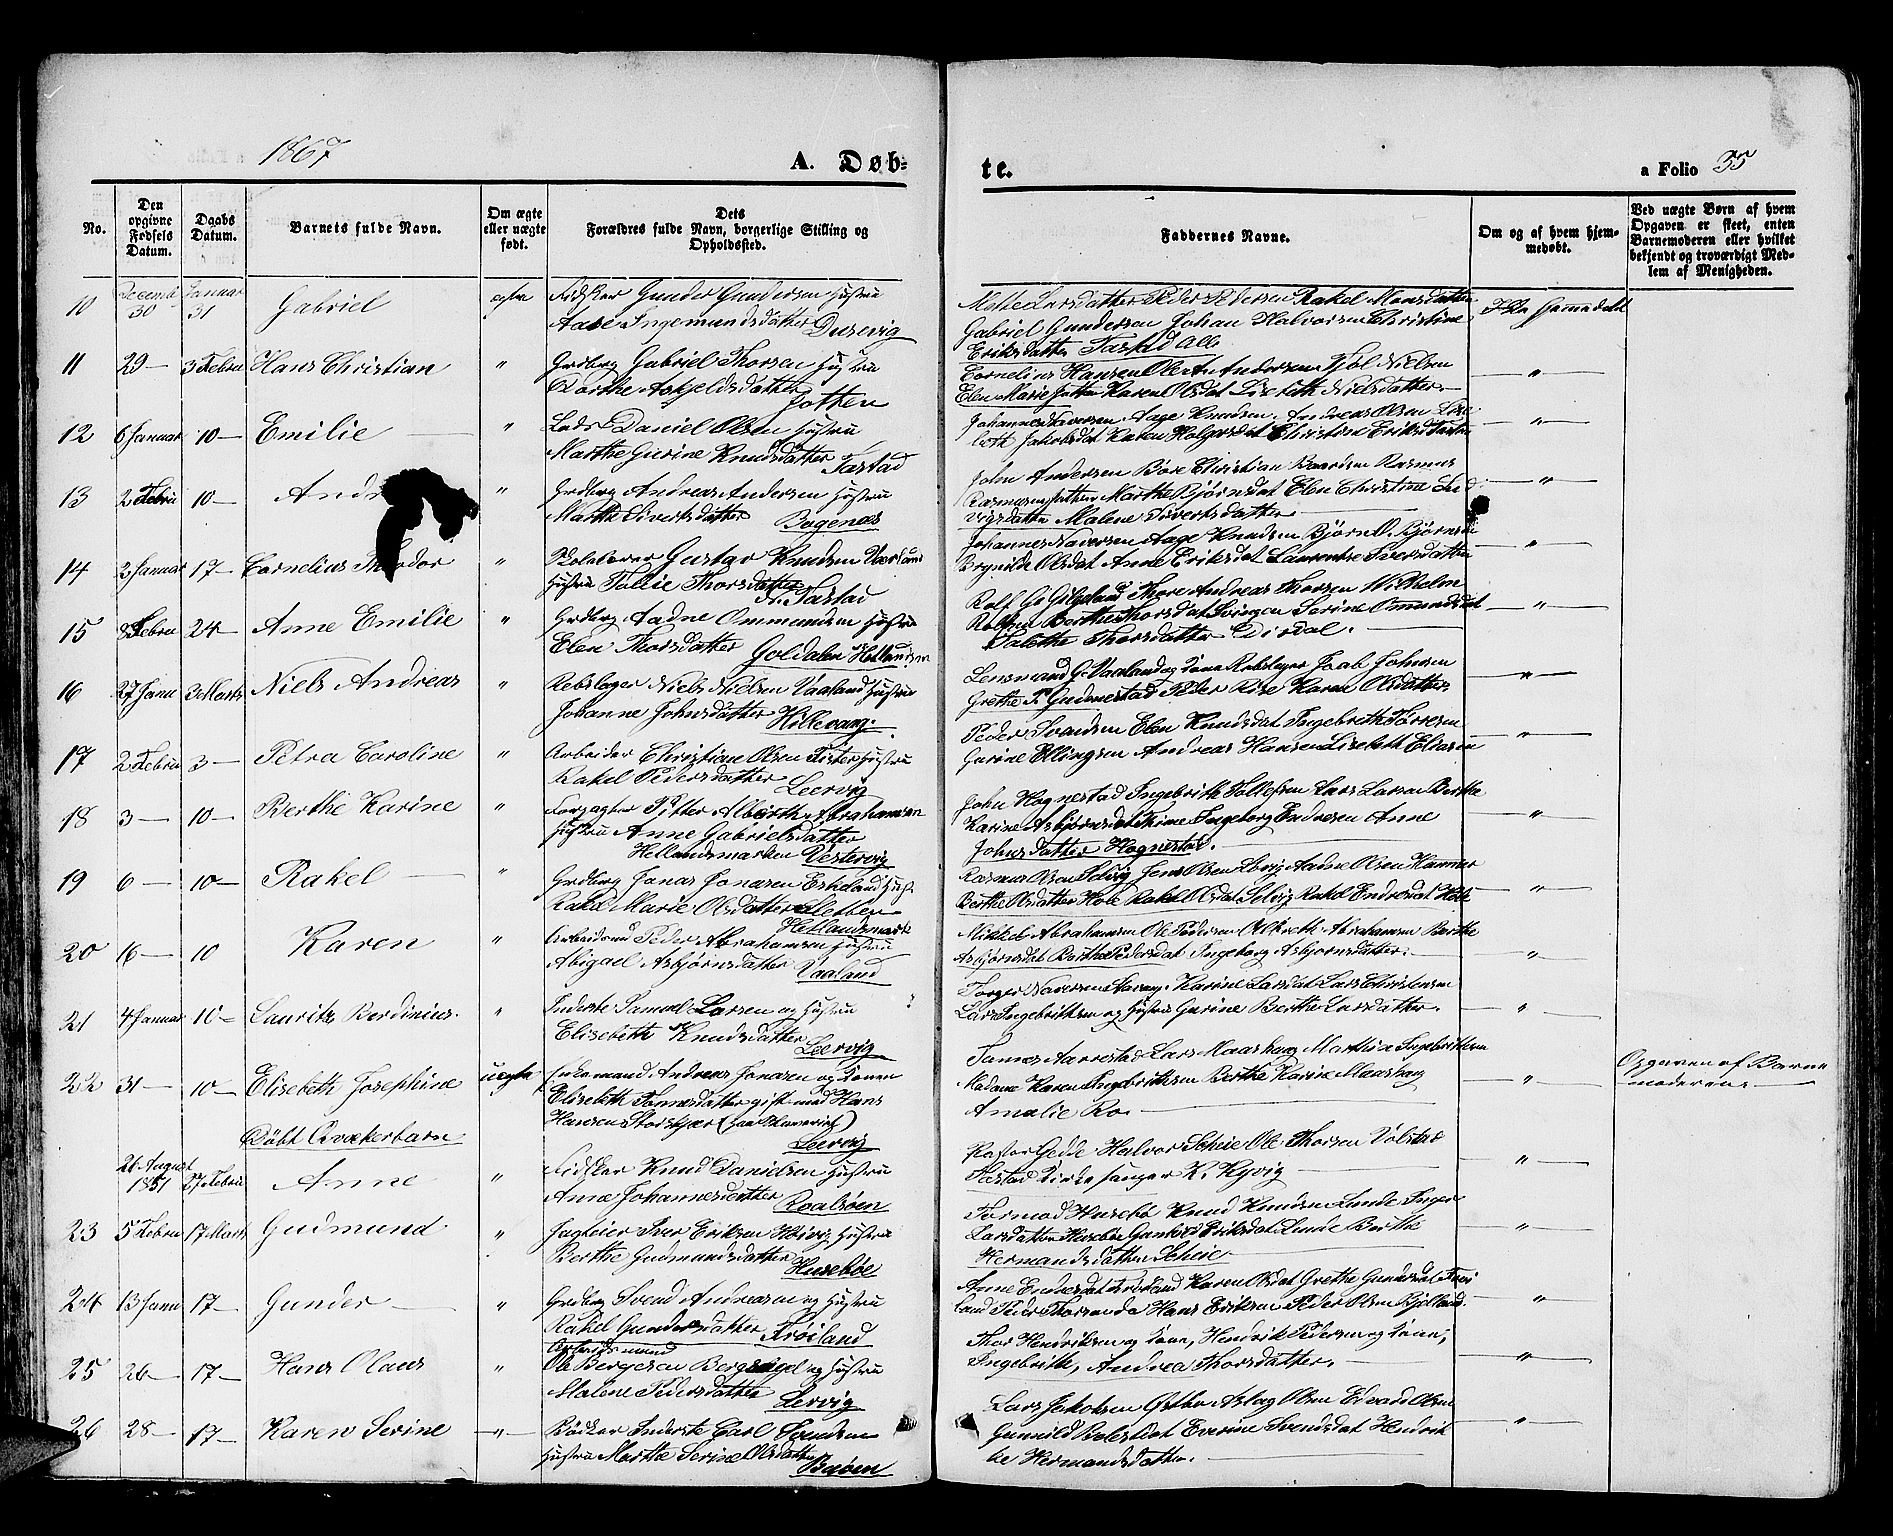 1867
A. Døb-
te.
a Folio 35
No.
Den opgivne Fødsels Datum.
Daabs Datum.
Barnets fulde Navn.
Om ægte eller uægte født.
Dets Forældres fulde Navn, borgerlige Stilling og Opholdssted.
Faddernes Navne.
Om og af hvem hjemmedøbt.
Ved uægte Børn af hvem Opgaven er skeet, enten Barnemoderen eller hvilket bekjendt og troværdigt Medlem af Menigheden.
10 Decemb 30 Januar 31 Gabriel ægte Fidsker Gunder Gundersen Hustru
Aase Ingemundsdatter Dusevig
Mette Larsdatter Peder Pedersen Rakel Monsdatter
Gabriel Gundersen Johan Halvorsen Christine
Eriksdatter Tastad Alle
11 29 — 3 Febru Hans Christian " Grdbrg Gabriel Thorsen Hustru
Dorthe Askjeldsdatter Jotten
Cornelius Hansen Ole A. Andersen Njøl Nielsen
Elen Marie Jotten Karen Olsdat Lisebeth Nielsdatter — " —
12 6 Januar 10 — Emilie — " Lods Daniel Olsen Hustru
Marthe Gurine Knudsdatter Tastad
Aage Knudsen Andreas Olsen Lise
beth Jakobsdat Karen Holgersdat Christine Eriksd Tastad — " —
13 2 Febru 10 — Andr " Grdbrg Andreas Andersen Hustru
Marthe Sivertsdatter Bogenæs
John Andersen Bore Christian Baardsen Rasmus
Marthe Bjørnsdat Elen Christine Lud
vigsdatter Malene Sivertsdatter — " —
14 3 Januar 17 — Cornelius Theodor " Gustav Knudsen
Hustru Talie Thorsdatter Tastad
Johannes Naversen Aage Knudsen Bjørn O. Bjørnsen
Brynilde Olsdat Anne Eriksdat Laurentse Sversdatter — " —
15 8 Febru 24 — Anne Emilie " Grdbrg Aadne Ommundsen Hustru
Elen Thorsdatter Goldalen Hetland
Rolf G. Gilstand Thore Andreas Thorsen Wilhelm
Rolfsen Berthe Thorsdat Svingen Serine Omundsdat — " —
Talethe Thorsdatter Dirdal.
16 27 Janu 3 Marts Niels Andreas " Rebslager Niels Nielsen Vaaland Hustru
Johanne Johnsdatter Hillevaag.
G. Vaaland og Kone Rebslager Jaab Johnsen
Grethe T. Gudmestad Peder Rise Karen Olsdatter — " —
17 2 Febru 3 — Petra Caroline " Arbeider Christian Olsen Hustru
Rakel Pedersdatter Leervig
Peder Svendsen Elen Knudsdat Ingebreth Torresen
Gurine Ellingsen Andreas Hansen Lisebeth Eliasen — " —
18 3 — 10 — Berthe Karine " Pitter Alberth Abrahamsen
Hustru Anne Gabrielsdatter
Hetlandsmarken Vestervig
John Hognestad Ingebrith Tollefsen Lars Larsen Berthe
Karine Asbjørnsdat Thime Ingeborg Endresen Anne
Johnsdatter Hognestad. — " —
19 6 — 10 — Rakel — " Grdbrg Jonas Jonasen Eskeland Hust
Rakel Marie Olsdatter Sletten
Hetlandsmark
Rasmus Olsen Solvig Jens Olsen Aadne Olsen
Berthe Olsdatter Hole Rakel Olsdat Solvig Rakel Endresdat Hole — " —
20 16 — 10 Karen " Arbeidsmd Peder Abrahamsen Hustru
Abigael Asbjørnsdatter Vaaland
Mikkel Abrahamsen Ole Pedersen Albreth Abrahamsen Berthe
Asbjørnsdat Berthe Pedersdat Ingeborg Asbjørnsdatter. — " —
21 4 Januar 10 — Lauritz Berdinius. " Inderste Samuel Larsen og Hustru
Elisebeth Knudsdatter Leervig
Torger Naversen Karine Larsdat Lars Christensen
Lars Ingebrithsen og Hustru Gurine Berthe Larsdatter. — " —
22 31 — 10 — Elisebeth Josephine uægte Enkemand Andreas Jonasen og Konen
Elisebeth Tønnesdatter gift med Hans
Hansen Storskjær (paa Amerika)
Leervig
Tønnes Aarrestad Lars Maashaug Marthea Ingebrithsen
Madame Karen Ingebrithsen Berthe Karine Maashaug
Amalie Ro. — " —
Opgaven af Barne
moderen. —
Døbt Qvækerbarn
26 August 1851 27 Febru Anne " Fidsker Knud Danielsen Hustru
Anna Johannesdatter Roalsøen
Pastor Gedde Halvor Scheie Ole Thorsen Volstad
Tastad Kirkesanger K. Kyvig — " —
23 5 Febru 17 Marts Gudmund " Iver Eriksen Høivig Hustru
Berthe Gudmundsdatter Husebøe
Tormod Husebø Knud Knudsen Lunde Inger
Larsdatter Husebøe Gunhild Eriksdat Lunde Berthe
Hermandsdatter Scheie — " —
24 13 Janu 17 — Gunder — " Grdbrg Svend Andreasen og Hustru
Rakel Gundersdatter Frøiland
Anne Endresdat Karen Olsdat Grethe Gundersdat Frøi
land Peder Thorsen do Hans Eriksen Peder Olsen Bjelland. — " —
25 26 — 17 — Hans Olaus " Arbeidsmand
Ole Bergesen Bergsagel og Hustru
Malene Pedersdatter Lervig
Thor Hendriksen og Kone, Hendrik Pedersen og Kone,
Ingebrithe, Andrea Thorsdatter. — " —
26 28 — 17 — Karen Serine — " — Bødker Inderste Carl Svendsen
Hustru Marthe Serine Olsdatter
Buøen
Lars Jakobsen Østbø Aslag Olsen Edvard Olsen
Gunnild Rolesdat Everine Svendsdat Hendrik
ke Hermandsdatter. — " —